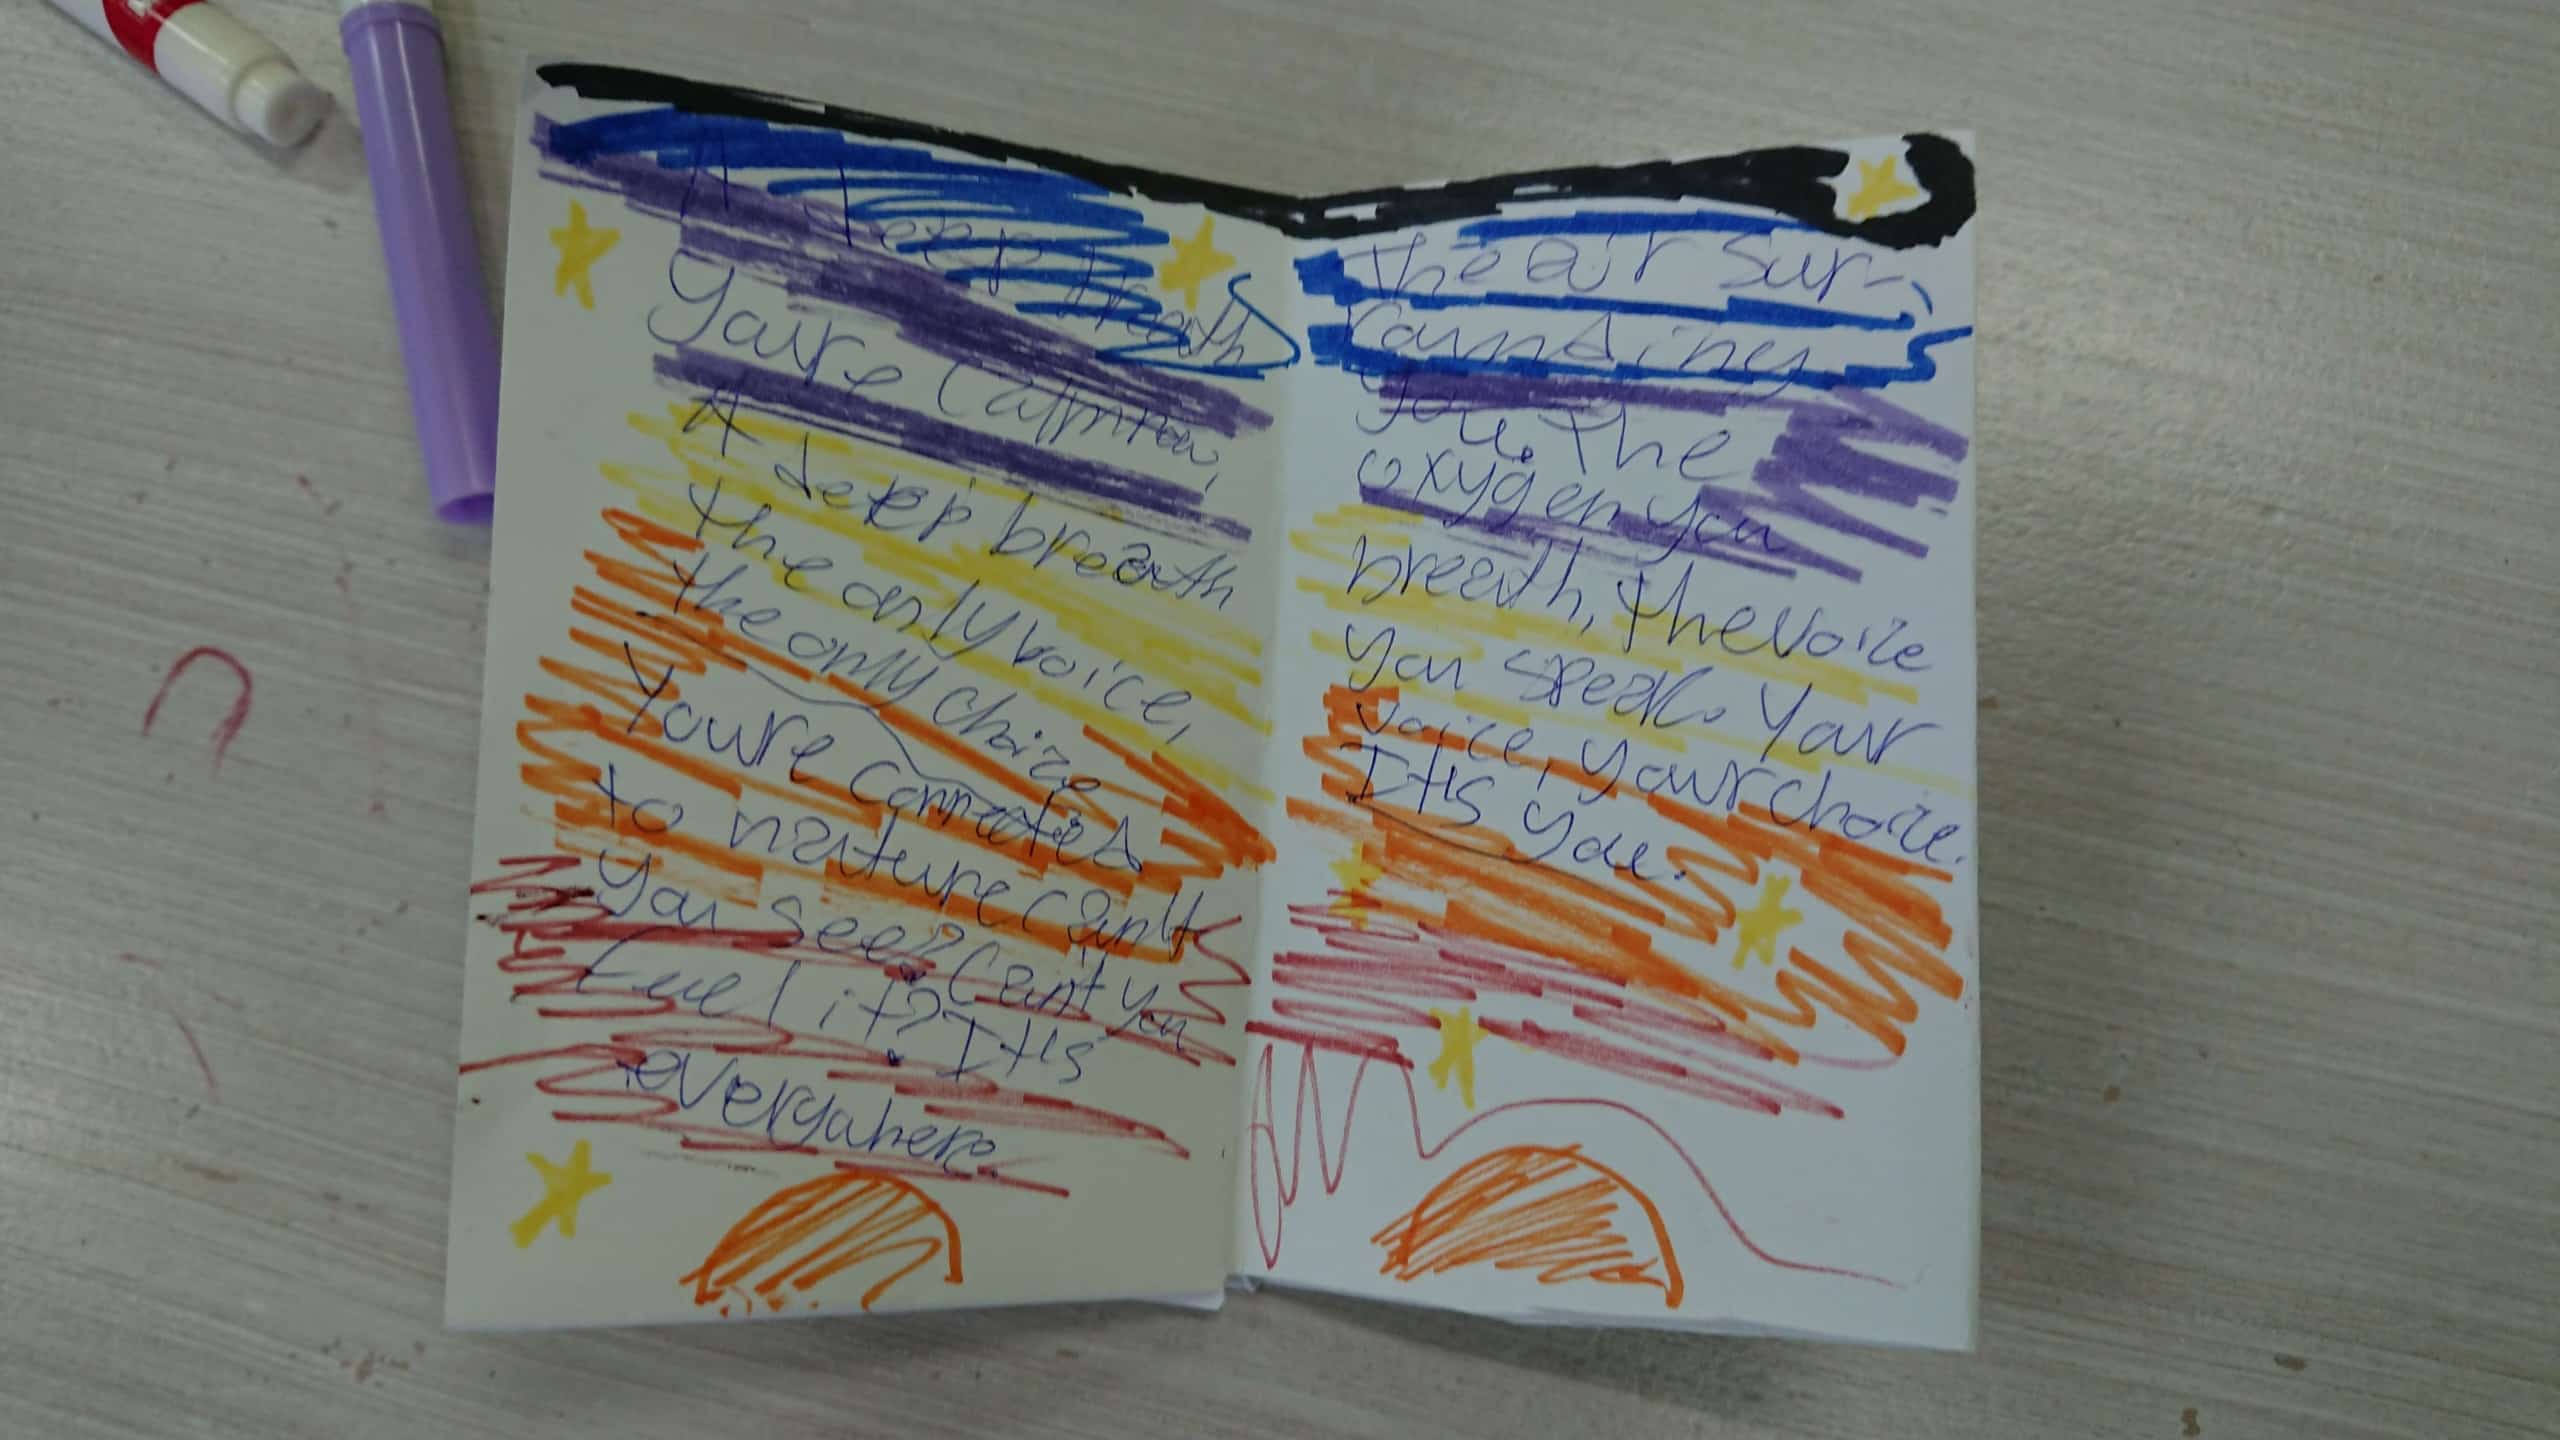 A deep breath
You're calm now,
A deep breath
the only voice,
the only choice
You're connected
to nature can't
you see? Can't you
feel it? It's
everywhere.
The air sur-
rounding
you. The
oxygen you
breath, the voice
you speak. Your
voice, your choice.
It's you.